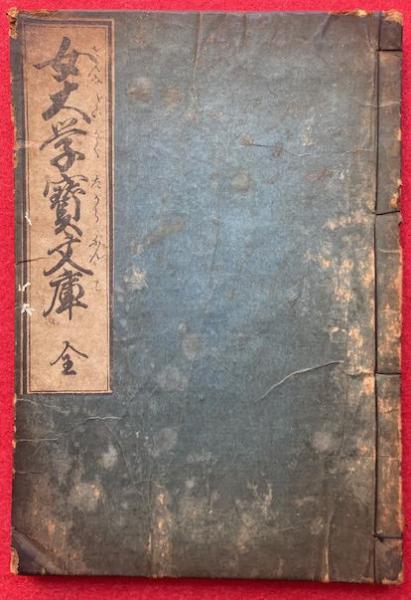 女大学寳文庫 全